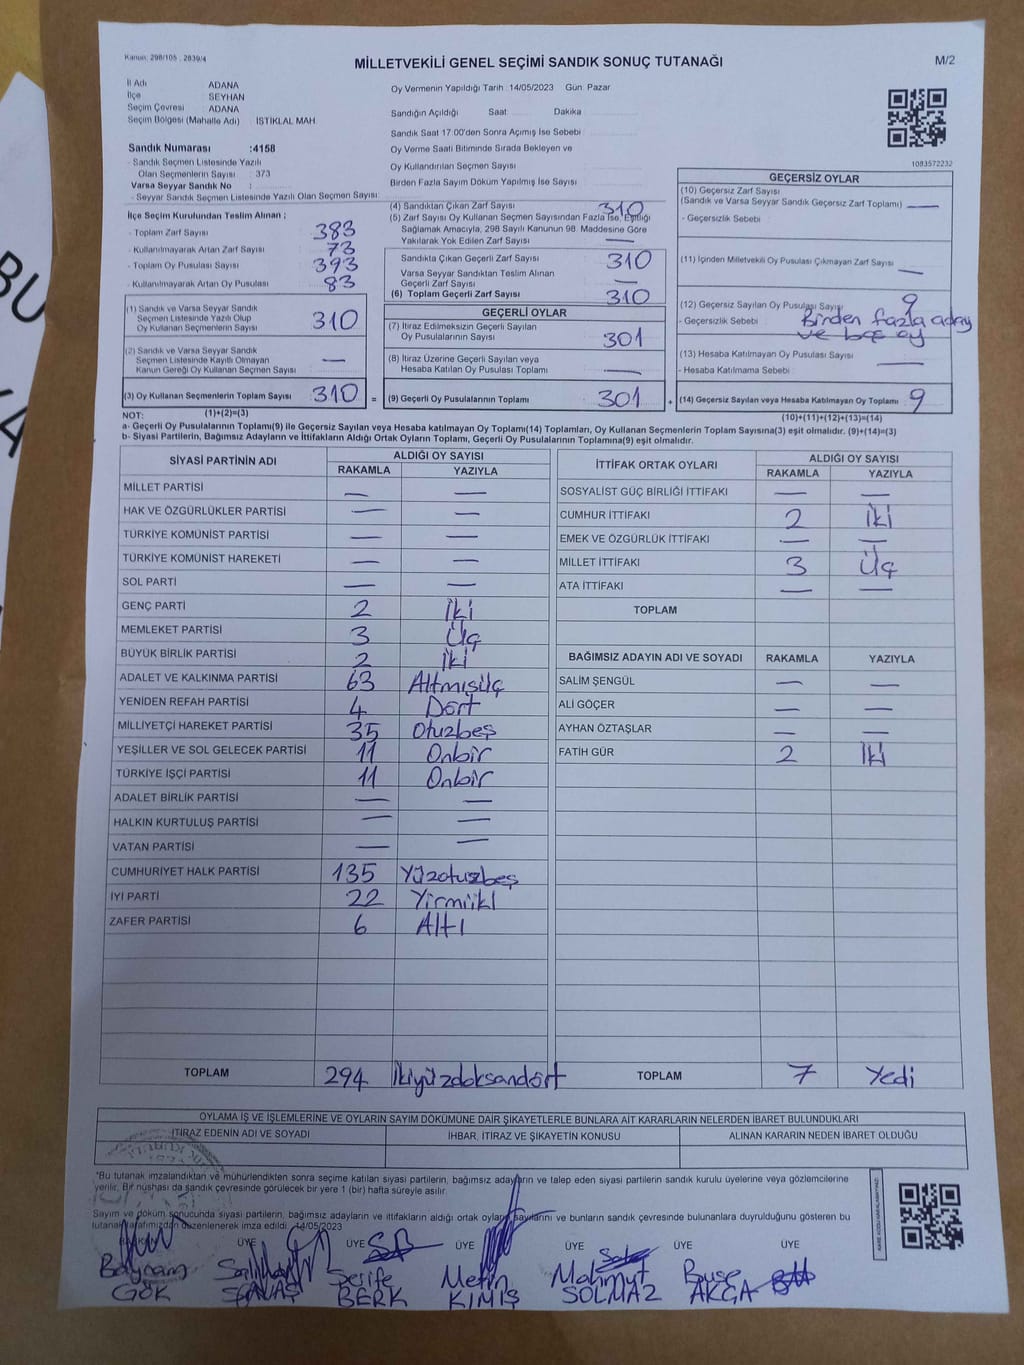 Kanun: 298/105 , 2839/4
MİLLETVEKİLİ GENEL SEÇİMİ SANDIK SONUÇ TUTANAĞI
M/2
İl Adı ADANA
İlçe SEYHAN
Seçim Çevresi : ADANA
Seçim Bölgesi (Mahalle Adı) : İSTİKLAL MAH.
Oy Vermenin Yapıldığı Tarih :14/05/2023 Gün: Pazar
Sandığın Açıldığı Saat Dakika
Sandık Saat 17:00'den Sonra Açılmış İse Sebebi
Oy Verme Saati Bitiminde Sırada Bekleyen ve
Oy Kullandırılan Seçmen Sayısı
Birden Fazla Sayım Döküm Yapılmış İse Sayısı
1083572232
Sandık Numarası :4158
- Sandık Seçmen Listesinde Yazılı
Olan Seçmenlerin Sayısı : 373
Varsa Seyyar Sandık No :
- Seyyar Sandık Seçmen Listesinde Yazılı Olan Seçmen Sayısı:
İlçe Seçim Kurulundan Teslim Alınan ;
- Toplam Zarf Sayısı 383
- Kullanılmayarak Artan Zarf Sayısı 73
- Toplam Oy Pusulası Sayısı 393
- Kullanılmayarak Artan Oy Pusulası 83
(1) Sandık ve Varsa Seyyar Sandık
Seçmen Listesinde Yazılı Olup
Oy Kullanan Seçmenlerin Sayısı 310
(2) Sandık ve Varsa Seyyar Sandık
Seçmen Listesinde Kayıtlı Olmayan
Kanun Gereği Oy Kullanan Seçmen Sayısı —
(3) Oy Kullanan Seçmenlerin Toplam Sayısı 310 =
(1)+(2)=(3)
(4) Sandıktan Çıkan Zarf Sayısı 310
(5) Zarf Sayısı Oy Kullanan Seçmen Sayısından Fazla İse, Eşitliği
Sağlamak Amacıyla, 298 Sayılı Kanunun 98. Maddesine Göre
Yakılarak Yok Edilen Zarf Sayısı —
Sandıkta Çıkan Geçerli Zarf Sayısı 310
Varsa Seyyar Sandıktan Teslim Alınan
Geçerli Zarf Sayısı —
(6) Toplam Geçerli Zarf Sayısı 310
GEÇERLİ OYLAR
(7) İtiraz Edilmeksizin Geçerli Sayılan
Oy Pusulalarının Sayısı 301
(8) İtiraz Üzerine Geçerli Sayılan veya
Hesaba Katılan Oy Pusulası Toplamı —
(9) Geçerli Oy Pusulalarının Toplamı 301 +
GEÇERSİZ OYLAR
(10) Geçersiz Zarf Sayısı
(Sandık ve Varsa Seyyar Sandık Geçersiz Zarf Toplamı) —
- Geçersizlik Sebebi
(11) İçinden Milletvekili Oy Pusulası Çıkmayan Zarf Sayısı —
(12) Geçersiz Sayılan Oy Pusulası Sayısı 9
- Geçersizlik Sebebi : Birden fazla aday
ve boş oy
(13) Hesaba Katılmayan Oy Pusulası Sayısı —
- Hesaba Katılmama Sebebi
(14) Geçersiz Sayılan veya Hesaba Katılmayan Oy Toplamı 9
(10)+(11)+(12)+(13)=(14)
NOT:
a- Geçerli Oy Pusulasının Toplamı(9) ile Geçersiz Sayılan veya Hesaba katılmayan Oy Toplamı(14) Toplamları, Oy Kullanan Seçmenlerin Toplam Sayısına(3) eşit olmalıdır. (9)+(14)=(3)
b- Siyasi Partilerin, Bağımsız Adayların ve İttifakların Aldığı Ortak Oyların Toplamı, Geçerli Oy Pusulalarının Toplamına(9) eşit olmalıdır.
SİYASİ PARTİNİN ADI ALDIĞI OY SAYISI
RAKAMLA YAZIYLA
MİLLET PARTİSİ — —
HAK VE ÖZGÜRLÜKLER PARTİSİ — —
TÜRKİYE KOMÜNİST PARTİSİ — —
TÜRKİYE KOMÜNİST HAREKETİ — —
SOL PARTİ — —
GENÇ PARTİ 2 İki
MEMLEKET PARTİSİ 3 Üç
BÜYÜK BİRLİK PARTİSİ 2 İki
ADALET VE KALKINMA PARTİSİ 63 Altmışüç
YENİDEN REFAH PARTİSİ 4 Dört
MİLLİYETÇİ HAREKET PARTİSİ 35 Otuzbeş
YEŞİLLER VE SOL GELECEK PARTİSİ 11 Onbir
TÜRKİYE İŞÇİ PARTİSİ 11 Onbir
ADALET BİRLİK PARTİSİ — —
HALKIN KURTULUŞ PARTİSİ — —
VATAN PARTİSİ — —
CUMHURİYET HALK PARTİSİ 135 Yüzotuzbeş
İYİ PARTİ 22 Yirmiiki
ZAFER PARTİSİ 6 Altı
TOPLAM 294 İkiyüzdoksandört
İTTİFAK ORTAK OYLARI ALDIĞI OY SAYISI
RAKAMLA YAZIYLA
SOSYALİST GÜÇ BİRLİĞİ İTTİFAKI — —
CUMHUR İTTİFAKI 2 İki
EMEK VE ÖZGÜRLÜK İTTİFAKI — —
MİLLET İTTİFAKI 3 Üç
ATA İTTİFAKI — —
TOPLAM
BAĞIMSIZ ADAYIN ADI VE SOYADI RAKAMLA YAZIYLA
SALİM ŞENGÜL — —
ALİ GÖÇER — —
AYHAN ÖZTAŞLAR — —
FATİH GÜR 2 İki
TOPLAM 7 Yedi
OYLAMA İŞ VE İŞLEMLERİNE VE OYLARIN SAYIM DÖKÜMÜNE DAİR ŞİKAYETLERLE BUNLARA AİT KARARLARIN NELERDEN İBARET BULUNDUKLARI
İTİRAZ EDENİN ADI VE SOYADI İHBAR, İTİRAZ VE ŞİKAYETİN KONUSU ALINAN KARARIN NEDEN İBARET OLDUĞU
*Bu tutanak imzalandıktan ve mühürlendikten sonra seçime katılan siyasi partilerin, bağımsız adayların ve talep eden siyasi partilerin sandık kurulu üyelerine veya gözlemcilerine
verilir. Bir nüshası da sandık çevresinde görülecek bir yere 1 (bir) hafta süreyle asılır.
Sayım ve döküm sonucunda siyasi partilerin, bağımsız adayların ve ittifakların aldığı ortak oyların sayılarını ve bunların sandık çevresinde bulunanlara duyrulduğunu gösteren bu
tutanak tarafımızdan düzenlenerek imza edildi. 14/05/2023
ÜYE ÜYE ÜYE ÜYE ÜYE ÜYE
Bayram Şerife Metin Mahmut Buse
GÖK SAVAŞ BERK KIMIŞ SOLMAZ AKÇA